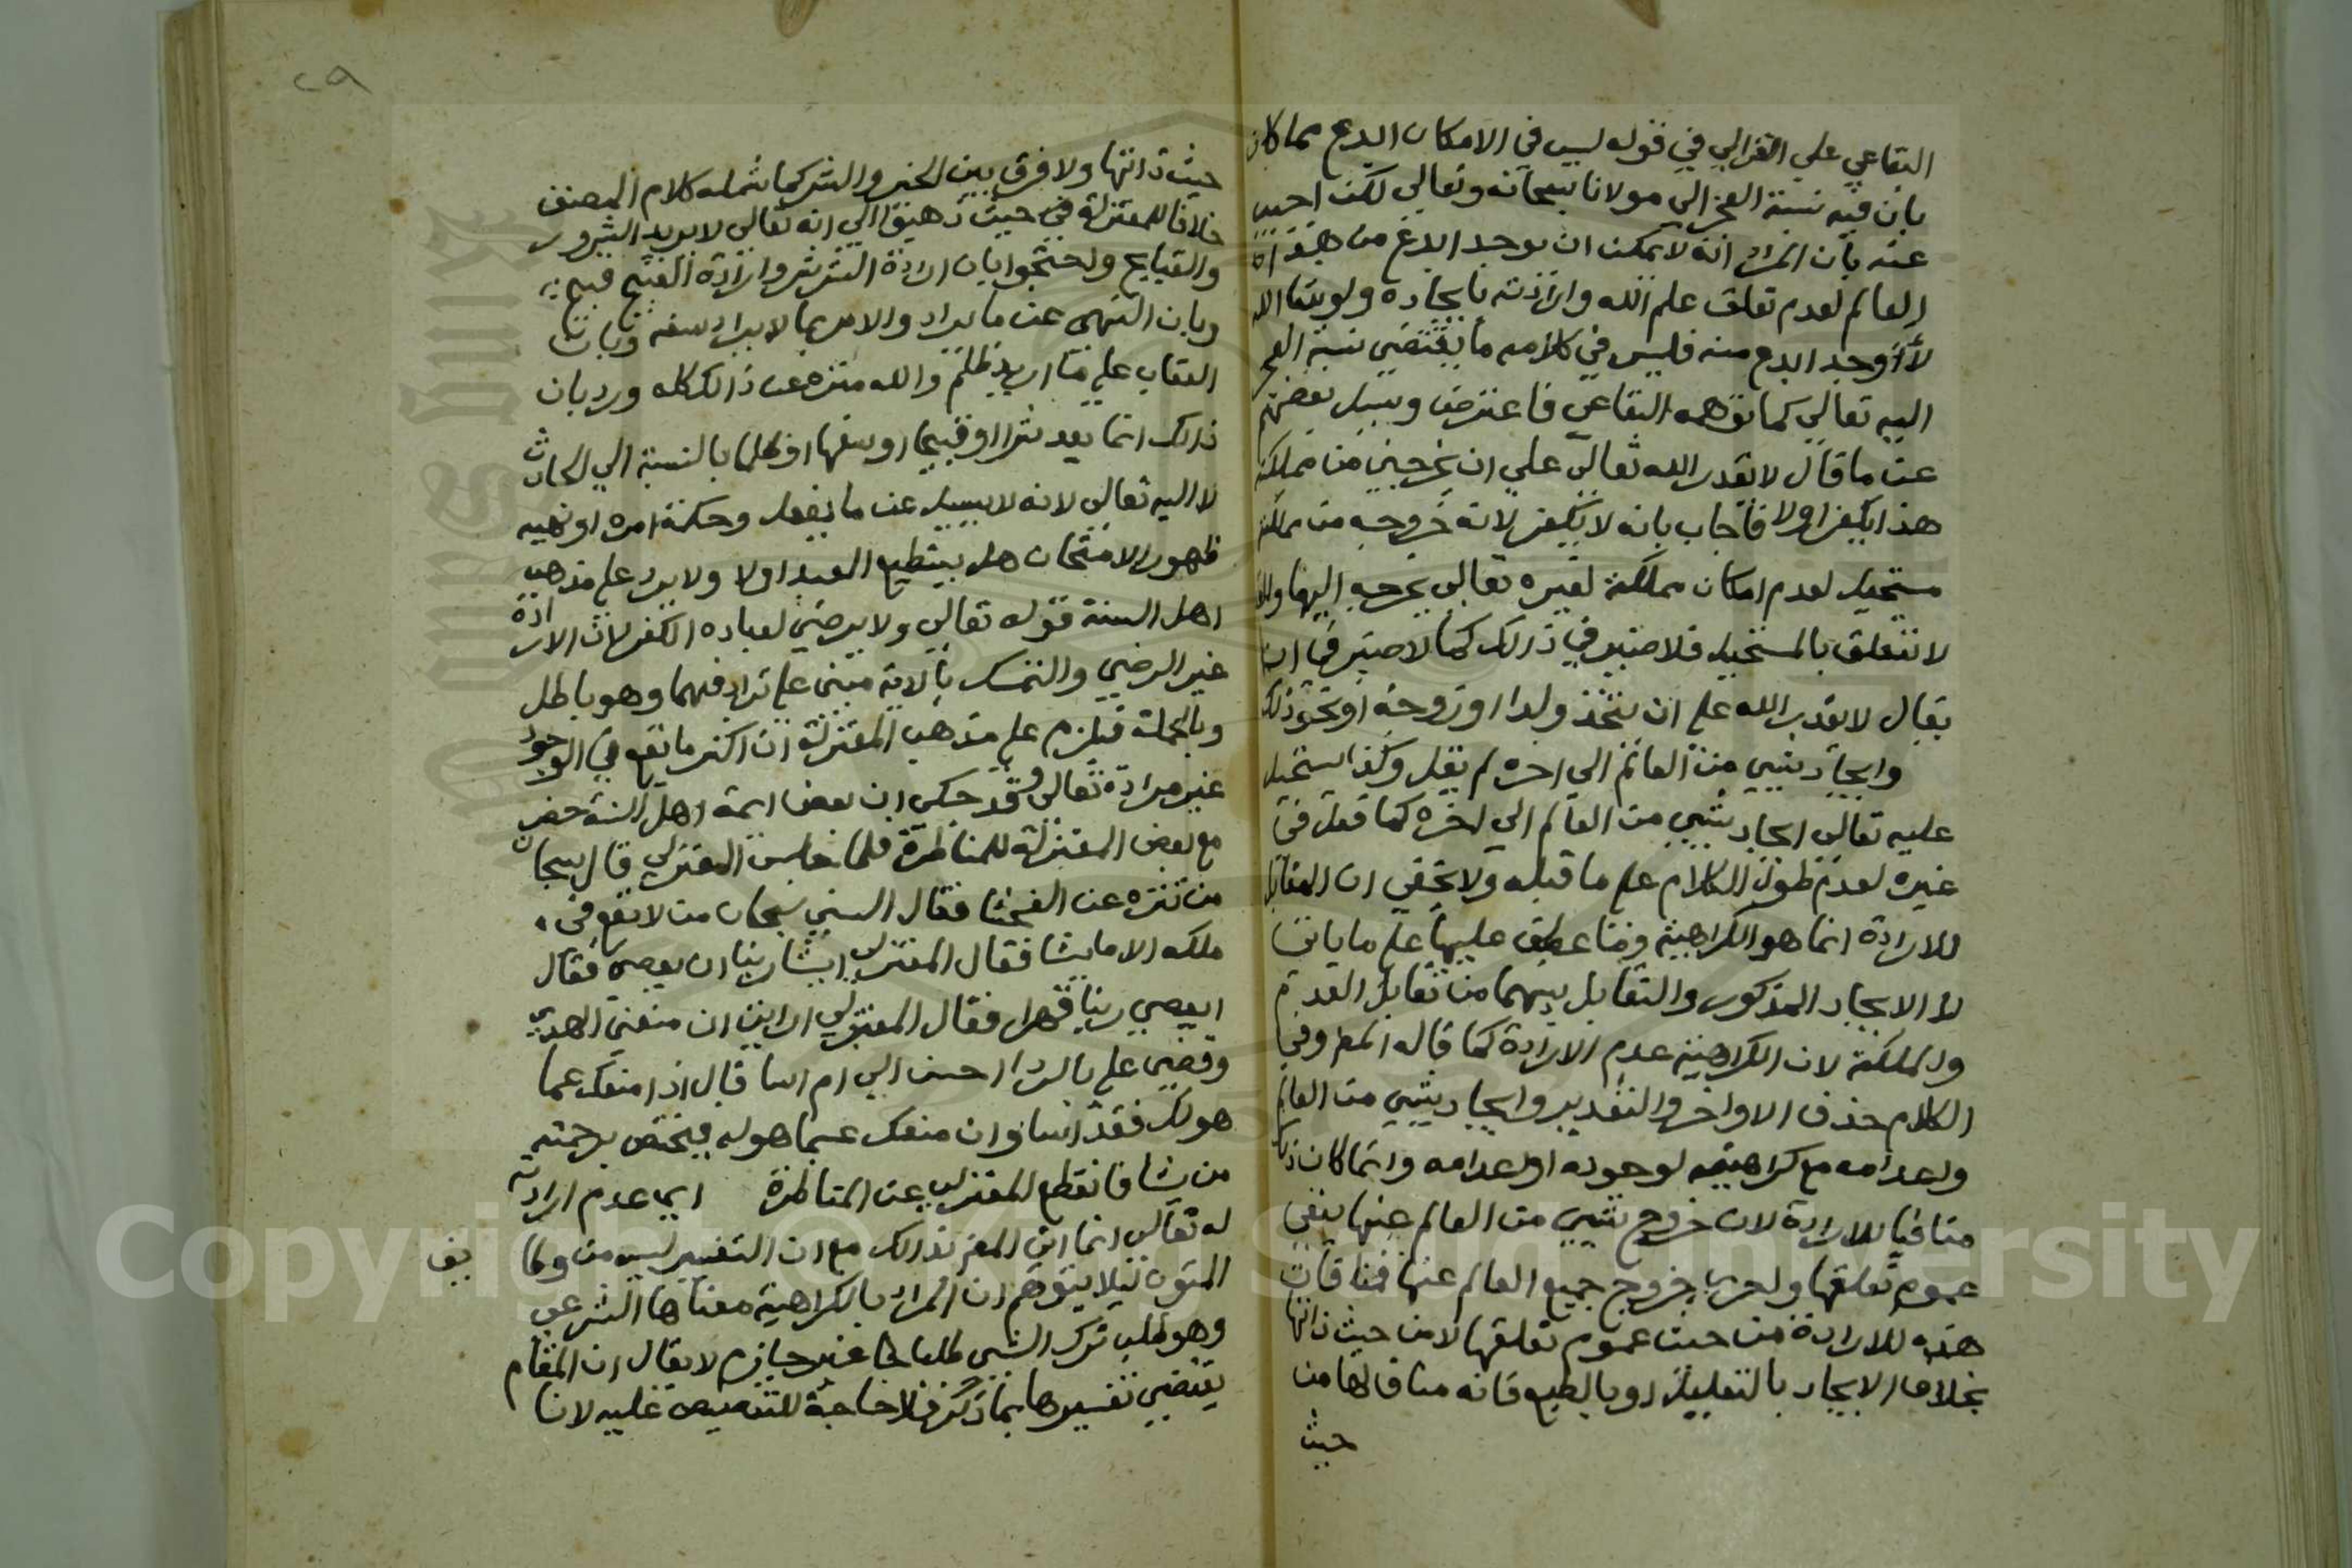 البقاعي علي الغزالي في قوله ليس في الامكان ابدع مما كان
بان فيه نسبة العجز الي مولانا سبحانه وتعالي لكن اجيب
عنه بان المراد انه لا يمكن ان يوجد ابدع من هذا
العالم لعدم تعلق علم الله وارادته بايجاده ولو شا الله
لأوجد ابدع منه فليس في كلامه ما يقتضي نسبة العجز
اليه تعالي كما توهمه البقاعي فاعترض وسيل بعضهم
عن ما قال لا يقدر الله تعالي علي ان يخرجني من مملكته
هذا ايكفر اولا فاجاب بانه لا يكفر لانه خروجه من مملكته
مستحيل لعدم امكان مملكة لغيره تعالي يخرجه اليها والقدرة
لا تتعلق بالمستحيل فلا ضير في ذالك كما لا ضير في ان
يقال لا يقدر الله علي ان يتخذ ولدا او زوجة او نحو ذلك
وايجاد شيي من العالم الي اخره لم يقل وكذا يستحيل
عليه تعالي ايجاد شيي من العالم الي اخره كما فعل في
غيره لعدم طول الكلام علي ما قبله ولا يخفي ان المقابل
للارادة انما هو الكراهية وما عطف عليها علي ما ياتي
لا الايجاد المذكور والتقابل بينهما من تقابل العدم
والملكة لان الكراهية عدم الارادة كما قاله المص وفي
الكلام حذف الاواخر والتقدير وايجاد شيي من العالم
واعدامه مع كراهيته لوجوده او اعدامه وانما كان ذلك
منافيا للارادة لان خروج شيي من العالم عنها ينفي
عموم تعلقها واحري خروج جميع العالم عنها فمنافات
هذه للارادة من حيث عموم تعلقها لا من حيث ذاتها
بخلاف الايجاد بالتعليل او بالطبع فانه مناف لها من
حيث
٢٩
حيث ذاتها ولا فرق بين الخير والشر كما شمله كلام المصنف
خلافا للمعتزلة في حيث ذهبوا الي انه تعالي لا يريد الشرور
والقبايح واحتجوا بان ارادة الشر شر وارادة القبيح قبيح
وبان النهي عن ما يراد والامر بما لا يراد سفه وبان
العقاب علي ما اريد ظلم والله منزه عن ذالك كله ورد بان
ذالك انما يعد شرا او قبيحا او سفها او ظلما بالنسبة الي الحادث
لا اليه تعالي لانه لا يسيل عن ما يفعل وحكمة امره او نهيه
ظهور الامتحان هل يستطيع العبد اولا ولا يرد علي مذهب
اهل السنة قوله تعالي ولا يرضي لعباده الكفر لان الارادة
غير الرضي والتمسك بالاية مبني علي ترادفهما وهو باطل
وبالجملة فيلزم علي مذهب المعتزلة ان اكثر ما يقع في الوجود
غير مرادة تعالي وقد حكي ان بعض ايمة اهل السنة حضر
مع بعض المعتزلة للمناظرة فلما جلس المعتزلي قال سبحان
من تنزه عن الفحشا فقال السني سبحان من لا يقع في
ملكه الا ما يشا فقال المعتزلي ايشا ربنا ان يعصي فقال
ايعصي ربنا قهرا فقال المعتزلي ارايت ان منعني الهدي
وقضي علي بالردا احسن الي ام اسا قال اذا منعك عما
هو لك فقد اسا وان منعك عما هو له فيختص برحمته
من يشا فانقطع المعتزلي عن المناظرة اي عدم ارادته
له تعالي انما اتي المص بذالك مع ان التفسير ليس من وظا
يف
المتون ليلا يتوهم ان المراد بالكراهية معناها الشرعي
وهو طلب ترك الشي طلبا غير جازم لا يقال ان المقام
يقتضي تفسيرها بما ذكر فلا حاجة للتنصيص عليه لانا
Copyright © King Saud University